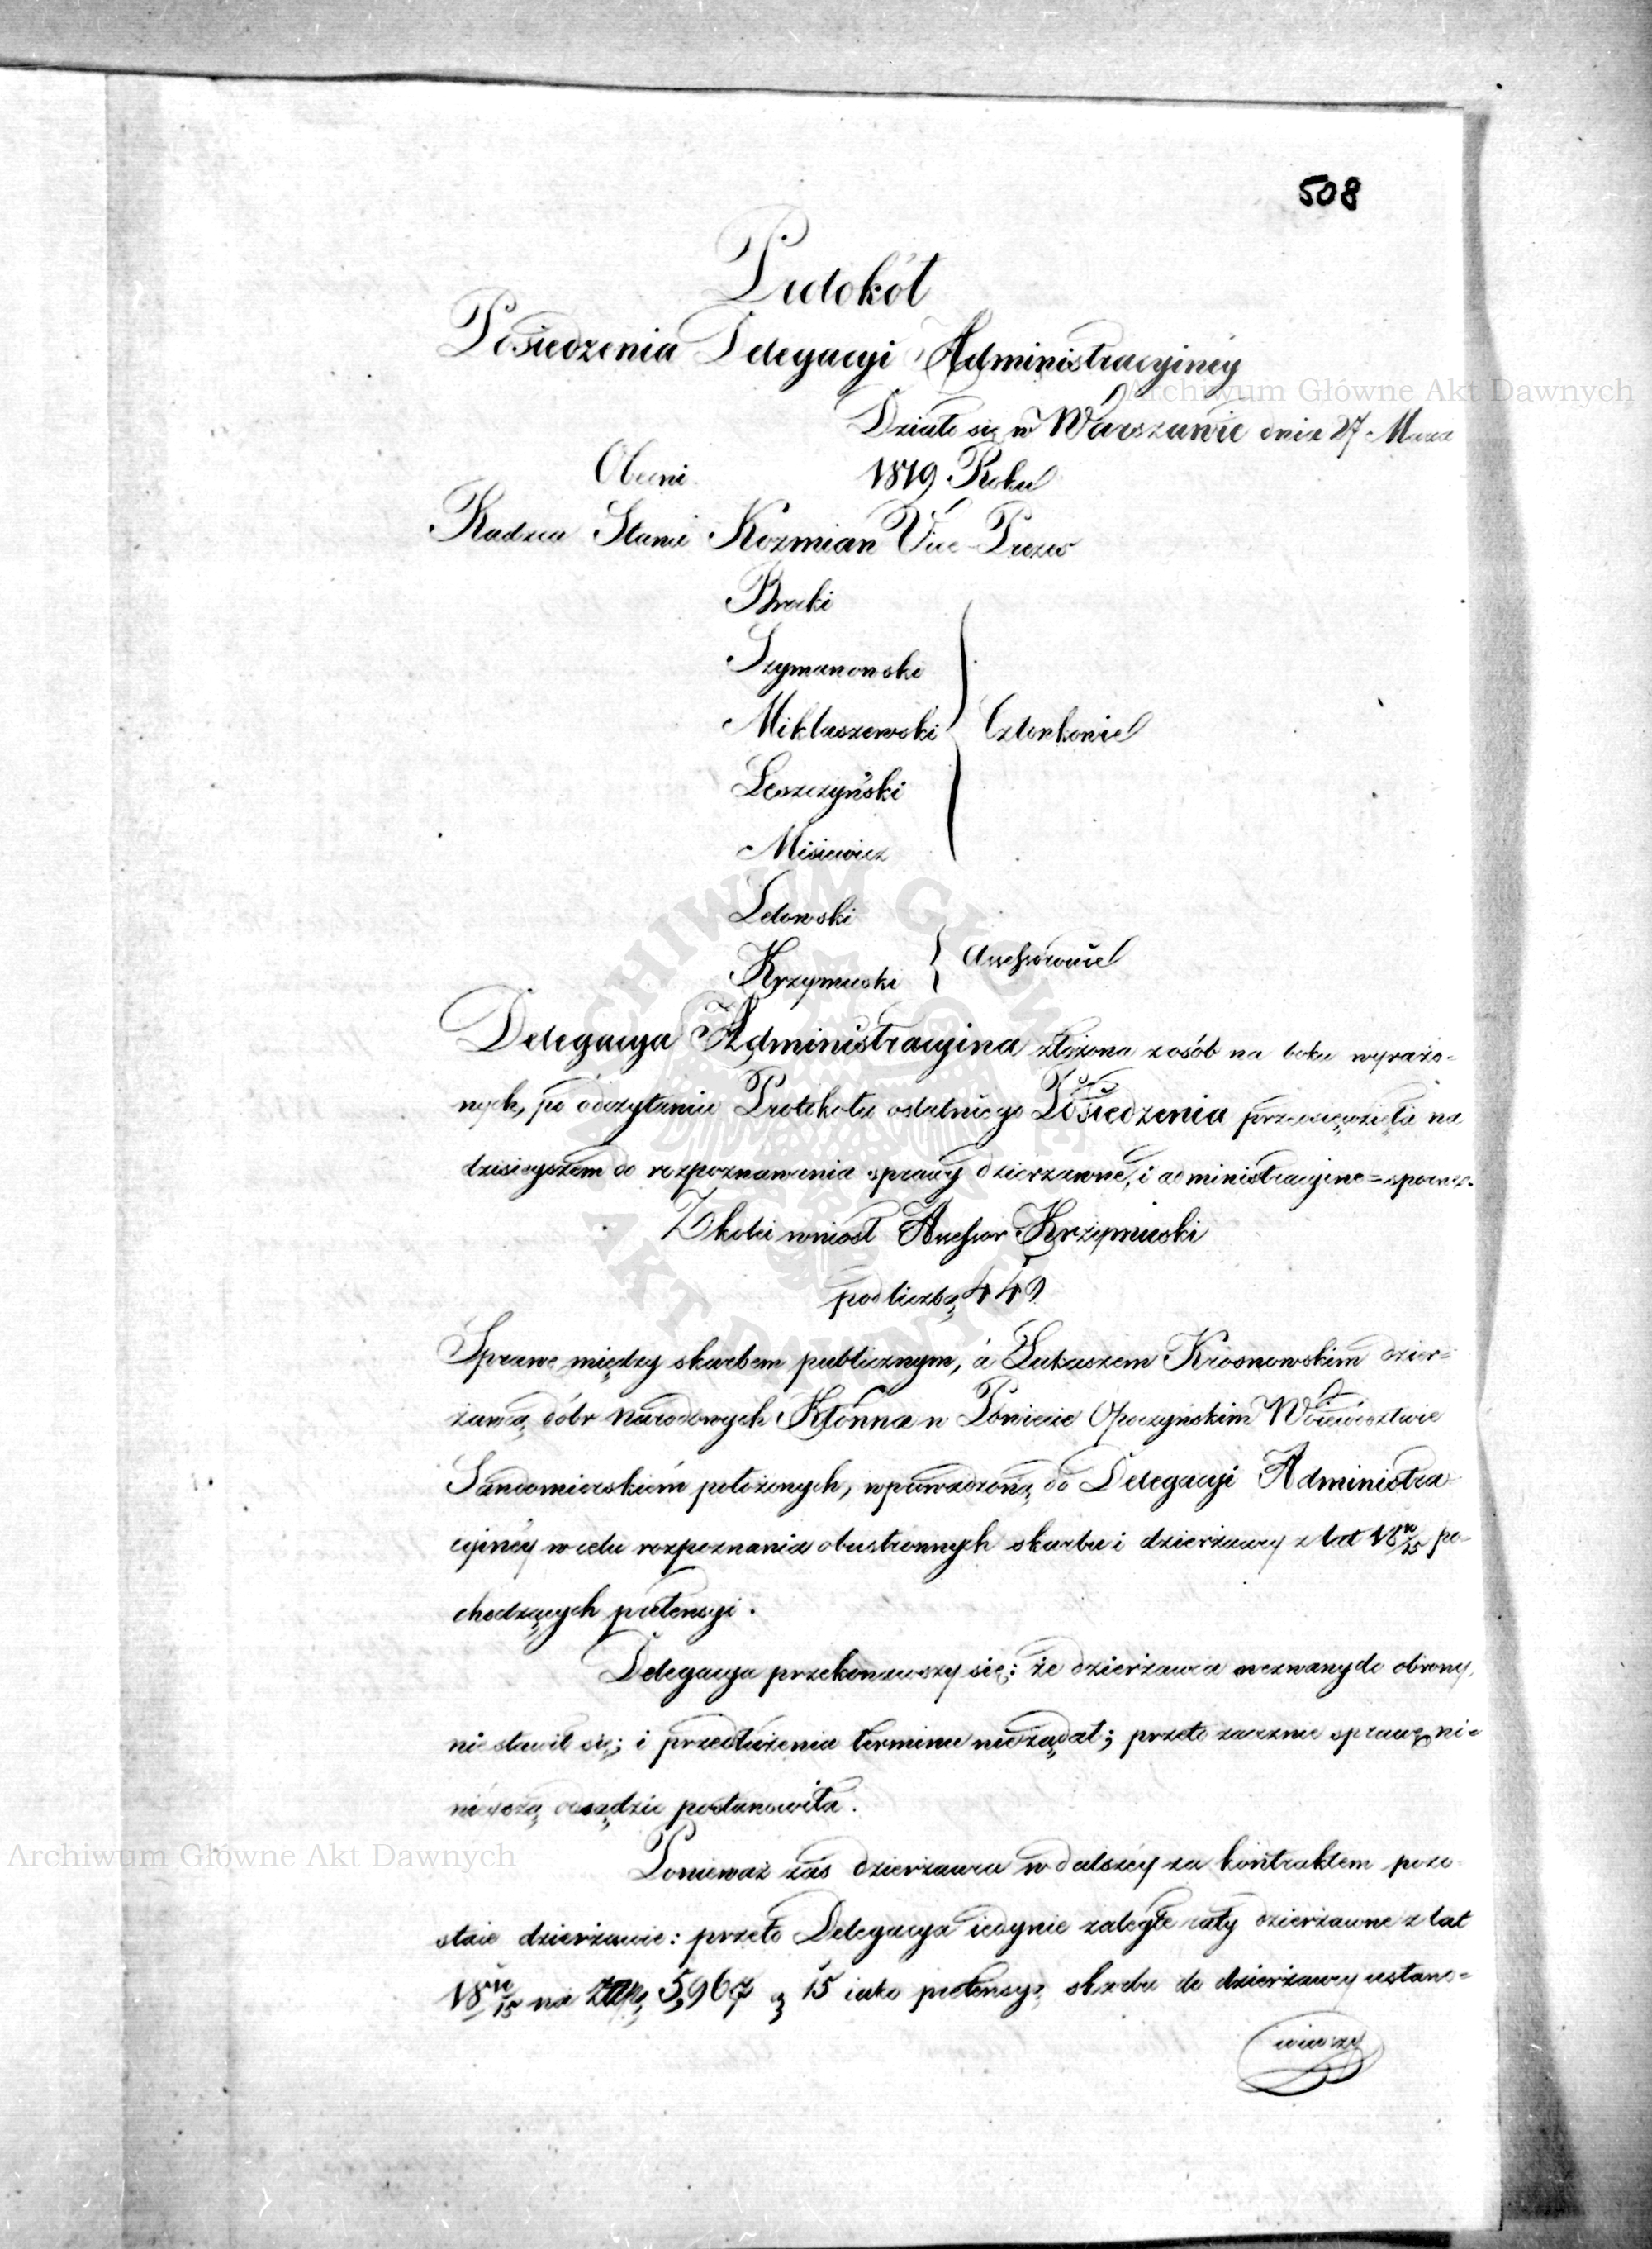 508
Protokół
Posiedzenia Delegacyi Administracyinéy
Działo się w Warszawie dnia 27 Marca
Obecni 1819 Roku
Radzca Stanu Kozmian Vice-Prezes
Brocki
Szymanowski
Miklaszewski Członkowie
Leszczyński
Misiewicz
Ledowski
Krzymuski Assessorowie
Delegacya Administracyina złożona z osób na boku wyrażo-
nych, po odczytaniu Protokołu ostatniego Posiedzenia przedsięwzięła na
dzisieyszem do rozpoznawania sprawy dzierżawne, i administracyjne=sporne.
Z kolei wniosł Assessor Krzymuski
pod liczbą 449
Sprawę między skarbem publicznym, á Łukaszem Krosnowskim dzier=
żawcą dóbr Narodowych Kłonna w Powiecie Opoczyńskim Woiewództwie
Sandomierskiém położonych, wprowadzoną do Delegacyi Administra
cyinéy w celu rozpoznania obustronnych skarbu i dzierżawcy z lat 18 /15 po-
chodzących pretensyi.
Delegacya przekonawszy się: że dzierżawca wezwany do obrony,
nie stawił się; i przedłużenia terminu nie żądał; przeto zaocznie sprawę ni-
nieyszą osądzić postanowiła.
Ponieważ zaś dzierżawca w dalszéy za kontraktem pozo-
staie dzierżawie: przeto Delegacya iedynie zaległe raty dzierżawne z lat
18 /15 na Złp. 5,967 g 15 iako pretensyę skarbu do dzierżawcy ustano=
wiwszy
Archiwum Główne Akt Dawnych
Archiwum Główne Akt Dawnych
ARCHIWUM GŁÓWNE AKT DAWNYCH